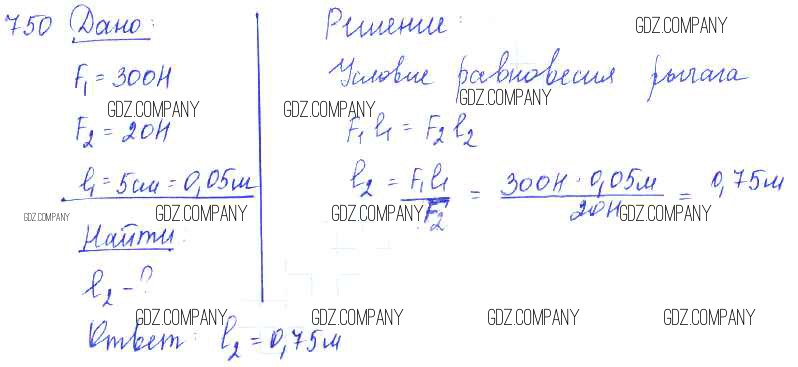 750 Дано:
F₁ = 300Н
F₂ = 20Н
l₁ = 5см = 0,05м
Найти:
l₂ - ?
Решение:
Условие равновесия рычага
F₁l₁ = F₂l₂
l₂ = F₁l₁ / F₂ = 300Н · 0,05м / 20Н = 0,75м
Ответ: l₂ = 0,75м
GDZ.COMPANY
GDZ.COMPANY
GDZ.COMPANY
GDZ.COMPANY
GDZ.COMPANY
GDZ.COMPANY
GDZ.COMPANY
GDZ.COMPANY
GDZ.COMPANY
GDZ.COMPANY
GDZ.COMPANY
GDZ.COMPANY
GDZ.COMPANY